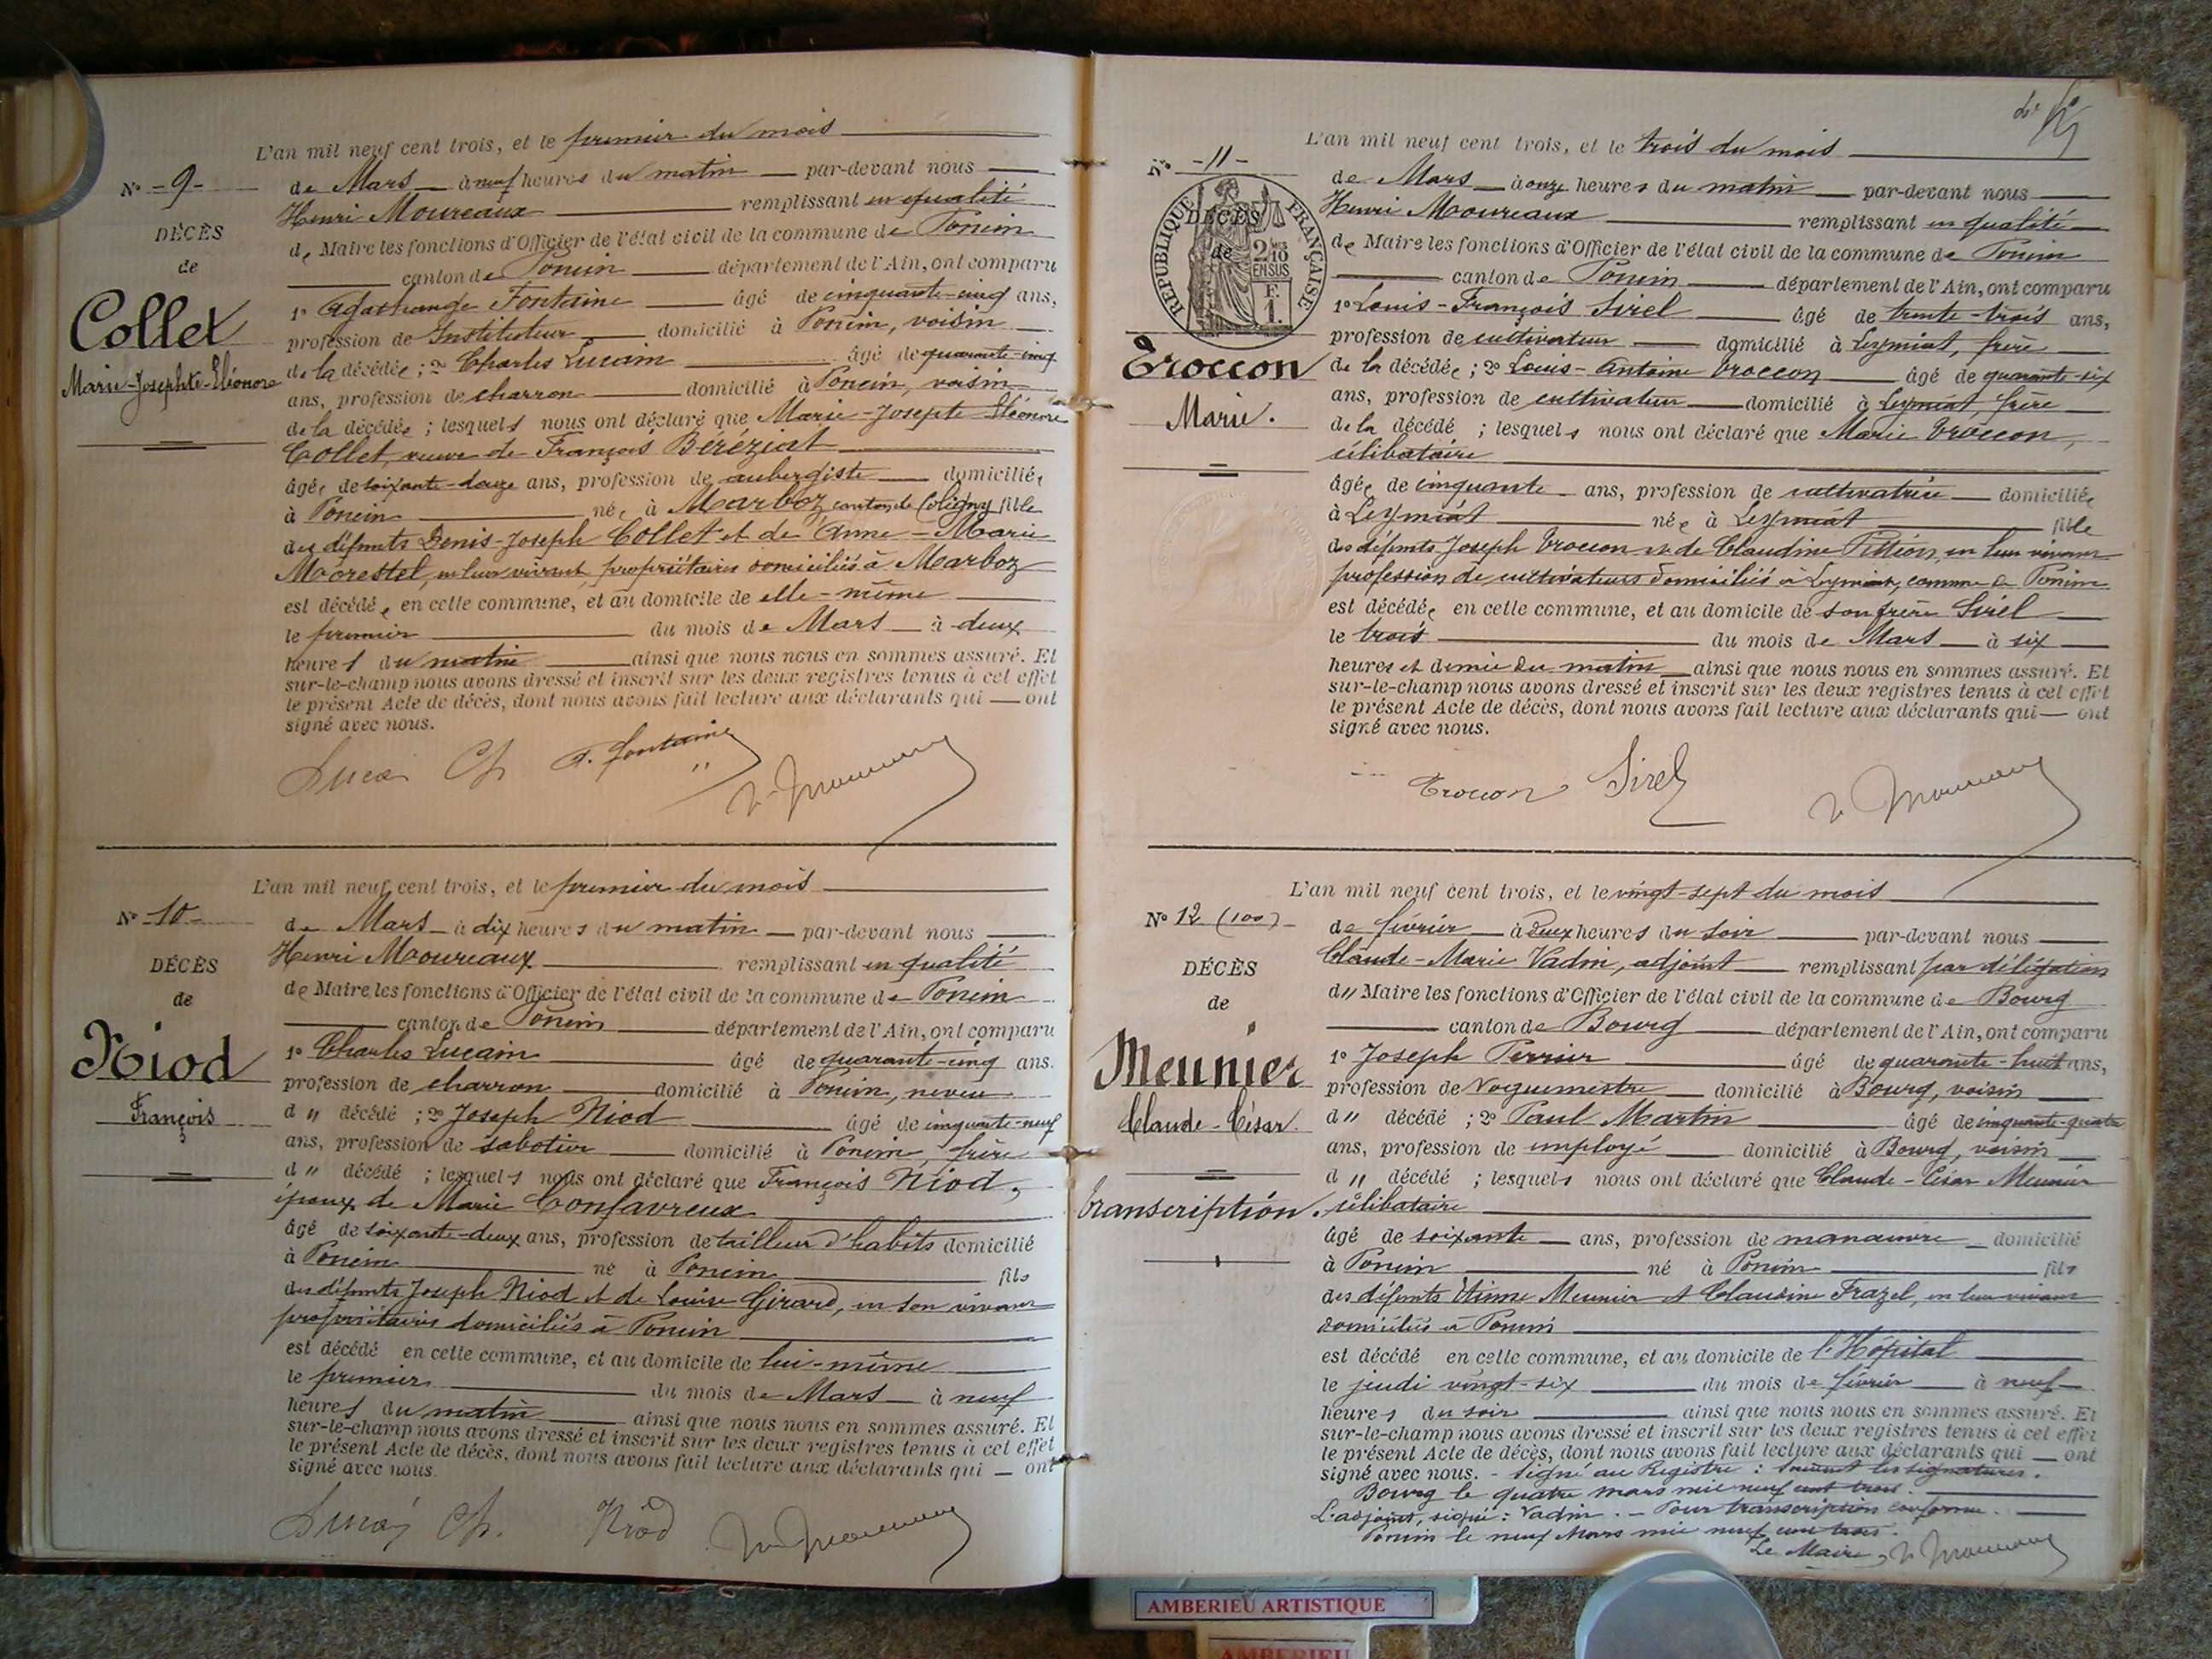 L'an mil neuf cent trois, et le premier du mois
N° - 9 -
de Mars à neuf heures du matin par-devant nous
Henri Moureaux remplissant en qualité
DÉCÈS
de Maire les fonctions d'Officier de l'état civil de la commune de Poncin
de
canton de Poncin département de l'Ain, ont comparu
1° Agathange Fontaine âgé de cinquante-cinq ans,
Collet
profession de Instituteur domicilié à Poncin, voisin
Marie-Josephte-Eléonore
de la décédée ; 2° Charles Lucain âgé de quarante-cinq
ans, profession de charron domicilié à Poncin, voisin
de la décédée ; lesquels nous ont déclaré que Marie-Josephte Eléonore
Collet, veuve de François Béréziat
âgée de soixante-douze ans, profession de aubergiste domiciliée
à Poncin née à Marboz canton de Coligny fille
des défunts Denis-Joseph Collet et de Anne-Marie
Morestel, en leur vivant, propriétaires domiciliés à Marboz
est décédée en cette commune, et au domicile de elle-même
le premier du mois de Mars à deux
heures du matin ainsi que nous nous en sommes assuré. Et
sur-le-champ nous avons dressé et inscrit sur les deux registres tenus à cet effet
le présent Acte de décès, dont nous avons fait lecture aux déclarants qui ont
signé avec nous.
Lucain Ch A. Fontaine H. Moureaux
L'an mil neuf cent trois, et le premier du mois
N° - 10 -
de Mars à dix heures du matin par-devant nous
Henri Moureaux remplissant en qualité
DÉCÈS
de Maire les fonctions d'Officier de l'état civil de la commune de Poncin
de
canton de Poncin département de l'Ain, ont comparu
Niod
1° Charles Lucain âgé de quarante-cinq ans.
profession de charron domicilié à Poncin, neveu
François
d " décédé ; 2° Joseph Niod âgé de cinquante-neuf
ans, profession de sabotier domicilié à Poncin, frère
d " décédé ; lesquels nous ont déclaré que François Niod,
époux de Marie Confavreux
âgé de soixante-deux ans, profession de tailleur d'habits domicilié
à Poncin né à Poncin fils
des défunts Joseph Niod et de Louise Girard, en son vivant
propriétaires domiciliés à Poncin
est décédé en cette commune, et au domicile de lui-même
le premier du mois de Mars à neuf
heures du matin ainsi que nous nous en sommes assuré. Et
sur-le-champ nous avons dressé et inscrit sur les deux registres tenus à cet effet
le présent Acte de décès, dont nous avons fait lecture aux déclarants qui ont
signé avec nous.
Lucain Ch. Niod H. Moureaux
L'an mil neuf cent trois, et le trois du mois
N° - 11 -
de Mars à onze heures du matin par-devant nous
Henri Moureaux remplissant en qualité
RÉPUBLIQUE FRANÇAISE
DÉCÈS
de
2/10 EN SUS
F. 1.
de Maire les fonctions d'Officier de l'état civil de la commune de Poncin
canton de Poncin département de l'Ain, ont comparu
1° Louis-François Sirel âgé de trente-trois ans,
profession de cultivateur domicilié à Leymiat, frère
Troccon
de la décédée ; 2° Louis-Antoine Troccon âgé de quarante-six
ans, profession de cultivateur domicilié à Leymiat, frère
Marie.
de la décédé ; lesquels nous ont déclaré que Marie Troccon,
célibataire
âgée de cinquante ans, profession de cultivatrice domiciliée
à Leymiat née à Leymiat fille
des défunts Joseph Troccon et de Claudine Pittion, en leur vivant
profession de cultivateurs domiciliés à Leymiat, commune de Poncin
est décédée en cette commune, et au domicile de son frère Sirel
le trois du mois de Mars à six
heures et demie du matin ainsi que nous nous en sommes assuré. Et
sur-le-champ nous avons dressé et inscrit sur les deux registres tenus à cet effet
le présent Acte de décès, dont nous avons fait lecture aux déclarants qui ont
signé avec nous.
Troccon Sirel H. Moureaux
L'an mil neuf cent trois, et le vingt-sept du mois
N° 12 (100)
de février à deux heures du soir par-devant nous
Claude-Marie Vadin, adjoint remplissant par délégation
DÉCÈS
d " Maire les fonctions d'Officier de l'état civil de la commune de Bourg
de
canton de Bourg département de l'Ain, ont comparu
Meunier
1° Joseph Perrier âgé de quarante-huit ans,
profession de Vaguemestre domicilié à Bourg, voisin
Claude-César.
d " décédé ; 2° Paul Martin âgé de cinquante-quatre
ans, profession de employé domicilié à Bourg, voisin
d " décédé ; lesquels nous ont déclaré que Claude-César Meunier
Transcription.
célibataire
âgé de soixante ans, profession de manœuvre domicilié
à Poncin né à Poncin fils
des défunts Etienne Meunier et Claudine Frazel, en leur vivant
domiciliés à Poncin
est décédé en cette commune, et au domicile de l'Hôpital
le jeudi vingt-six du mois de février à neuf
heures du soir ainsi que nous nous en sommes assuré. Et
sur-le-champ nous avons dressé et inscrit sur les deux registres tenus à cet effet
le présent Acte de décès, dont nous avons fait lecture aux déclarants qui ont
signé avec nous. - Signé au Registre : Suivent les signatures.
Bourg le quatre mars mil neuf cent trois.
L'adjoint, signé : Vadin. - Pour transcription conforme.
Poncin le neuf Mars mil neuf cent trois.
Le Maire, H. Moureaux
AMBERIEU ARTISTIQUE
AMBERIEU